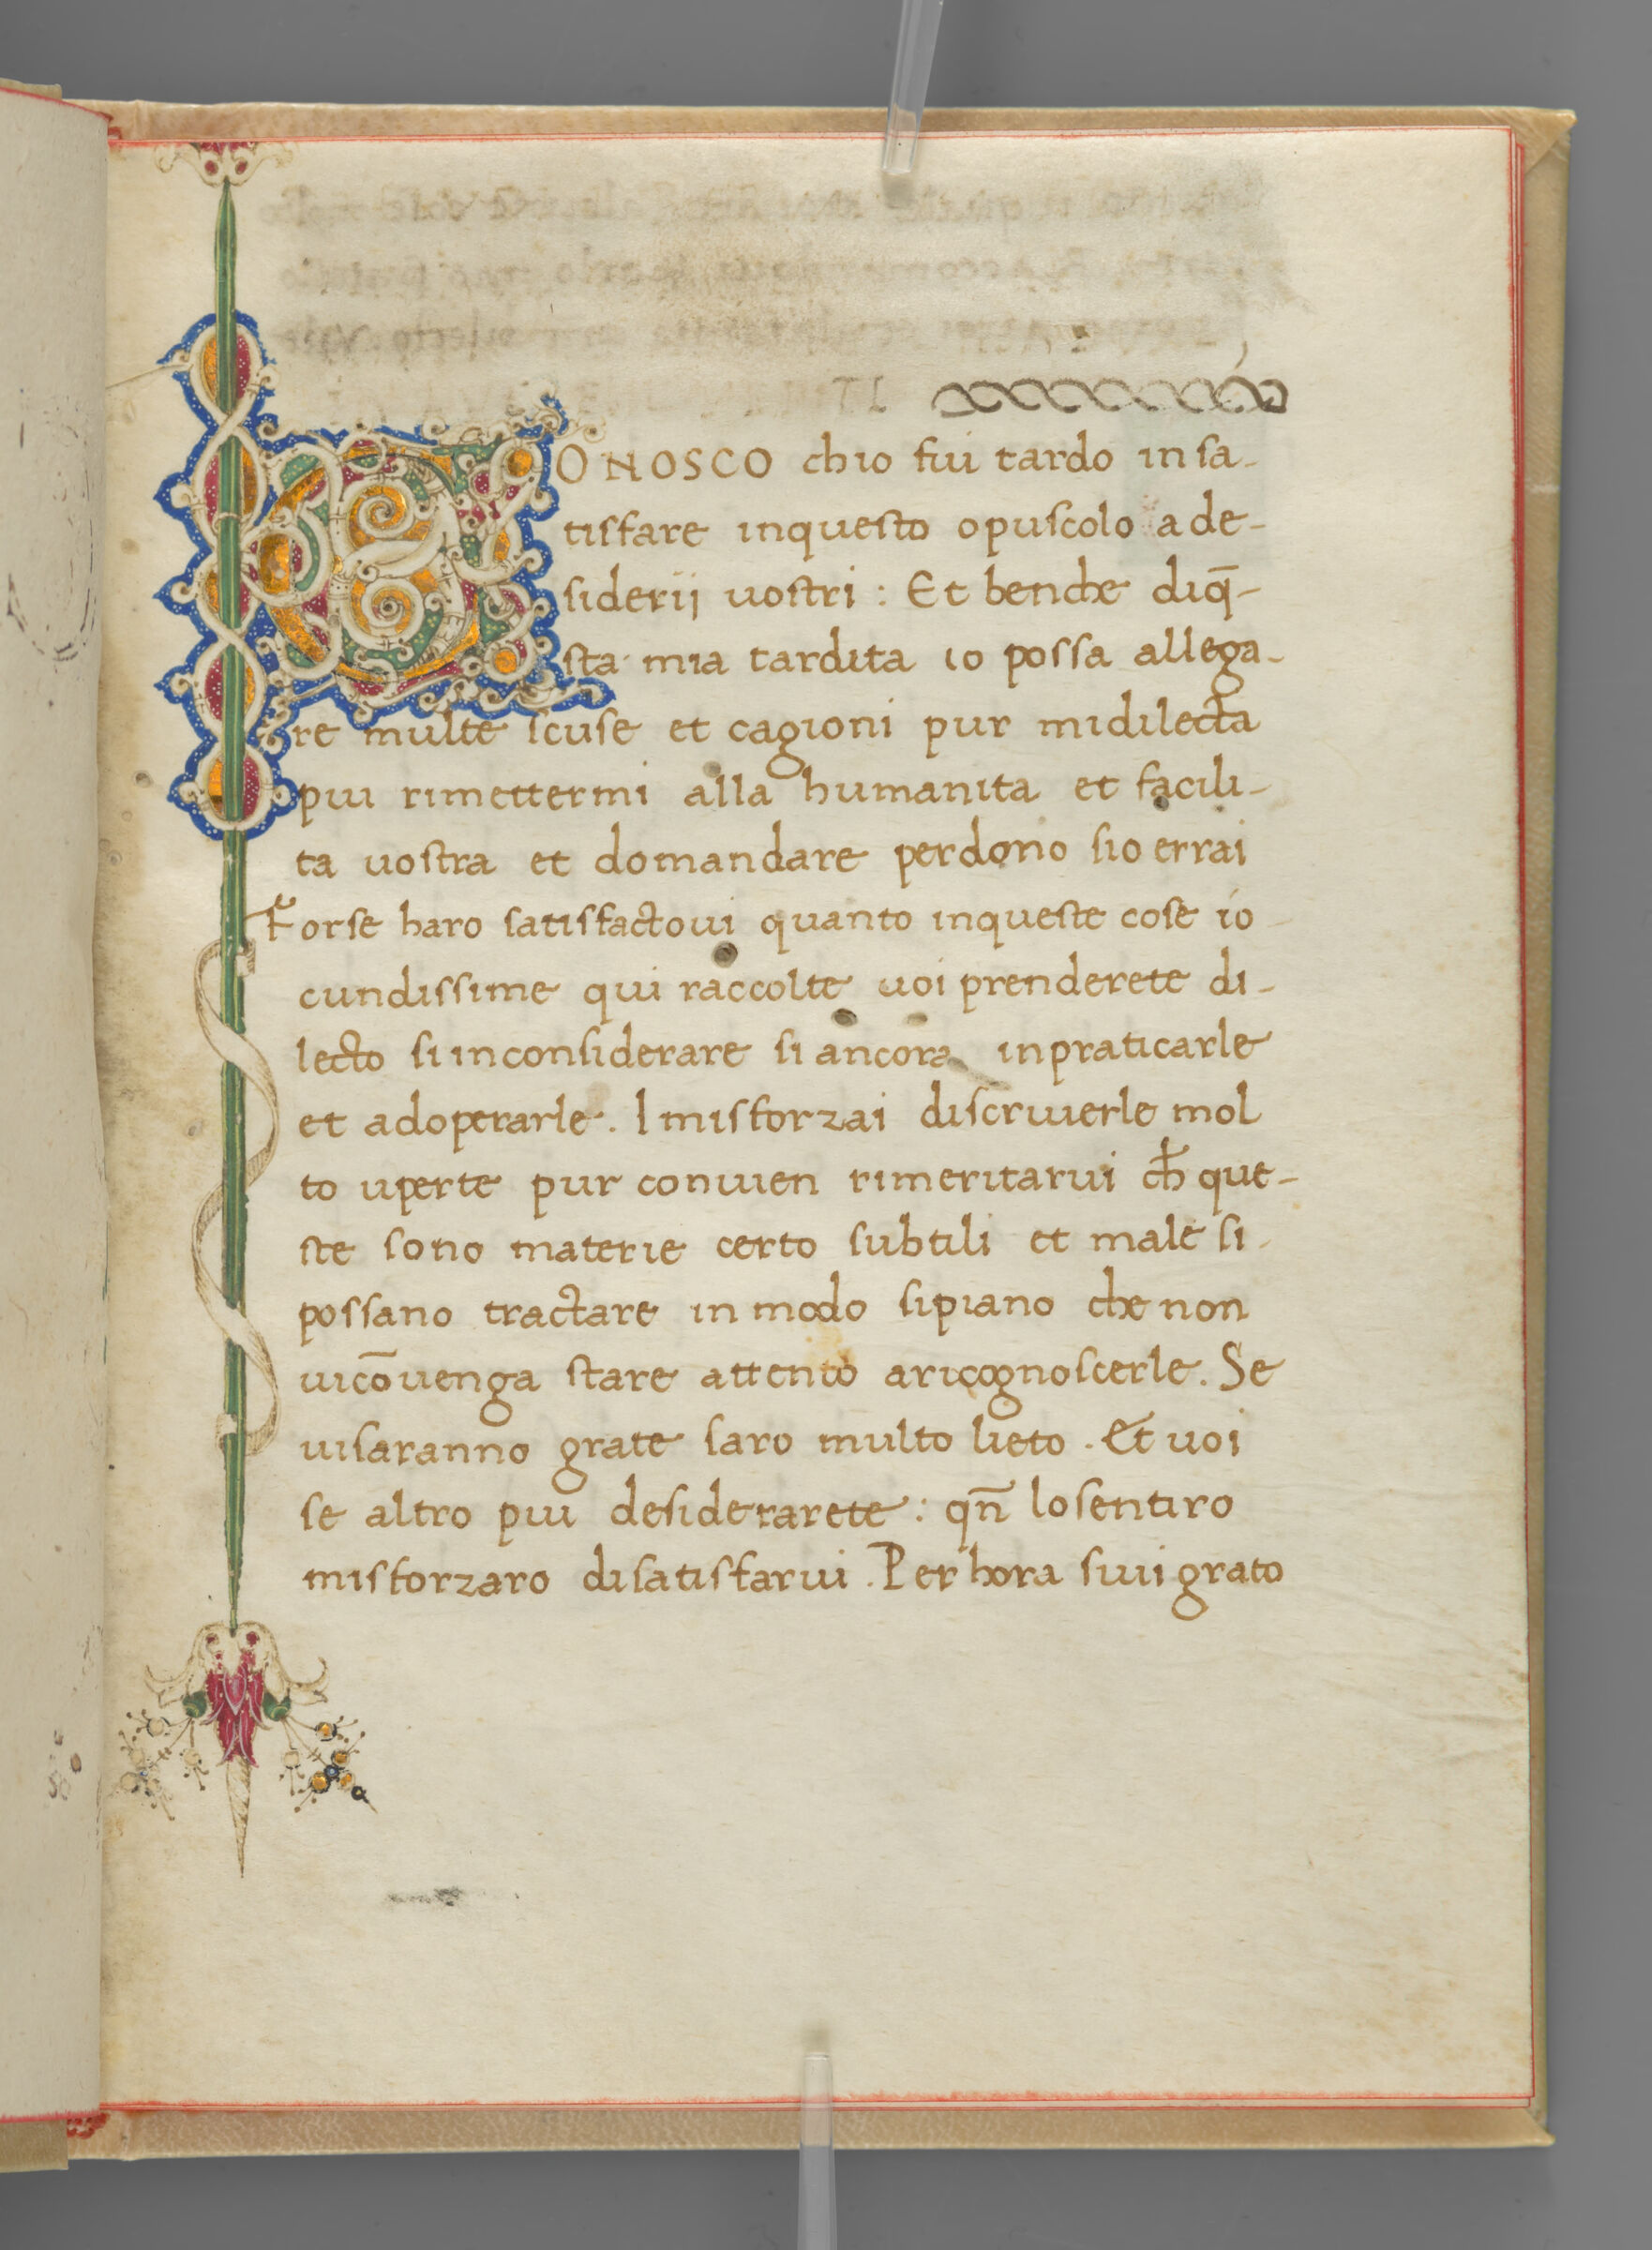 CONOSCO chio fui tardo in sa-
tisfare inquesto opuscolo a de-
siderij uostri : Et benche diq̄-
sta mia tardita io possa allega-
re multe scuse et cagioni pur midilecta
piu rimettermi alla humanita et facili-
ta uostra et domandare perdono sio errai
Forse haro satisfactoui quanto inqueste cose io
cundissime qui raccolte uoi prenderete di-
lecto si inconsiderare si ancora inpraticarle
et adoperarle. I misforzai discriuerle mol
to uperte pur conuien rimeritarui ch̄ que-
ste sono materie certo subtili et male si
possano tractare in modo sipiano che non
uicōuenga stare attento aricognoscerle. Se
uisaranno grate saro multo lieto. Et uoi
se altro piu desiderarete : qn̄ losentiro
misforzaro disatisfarui. Per hora siui grato